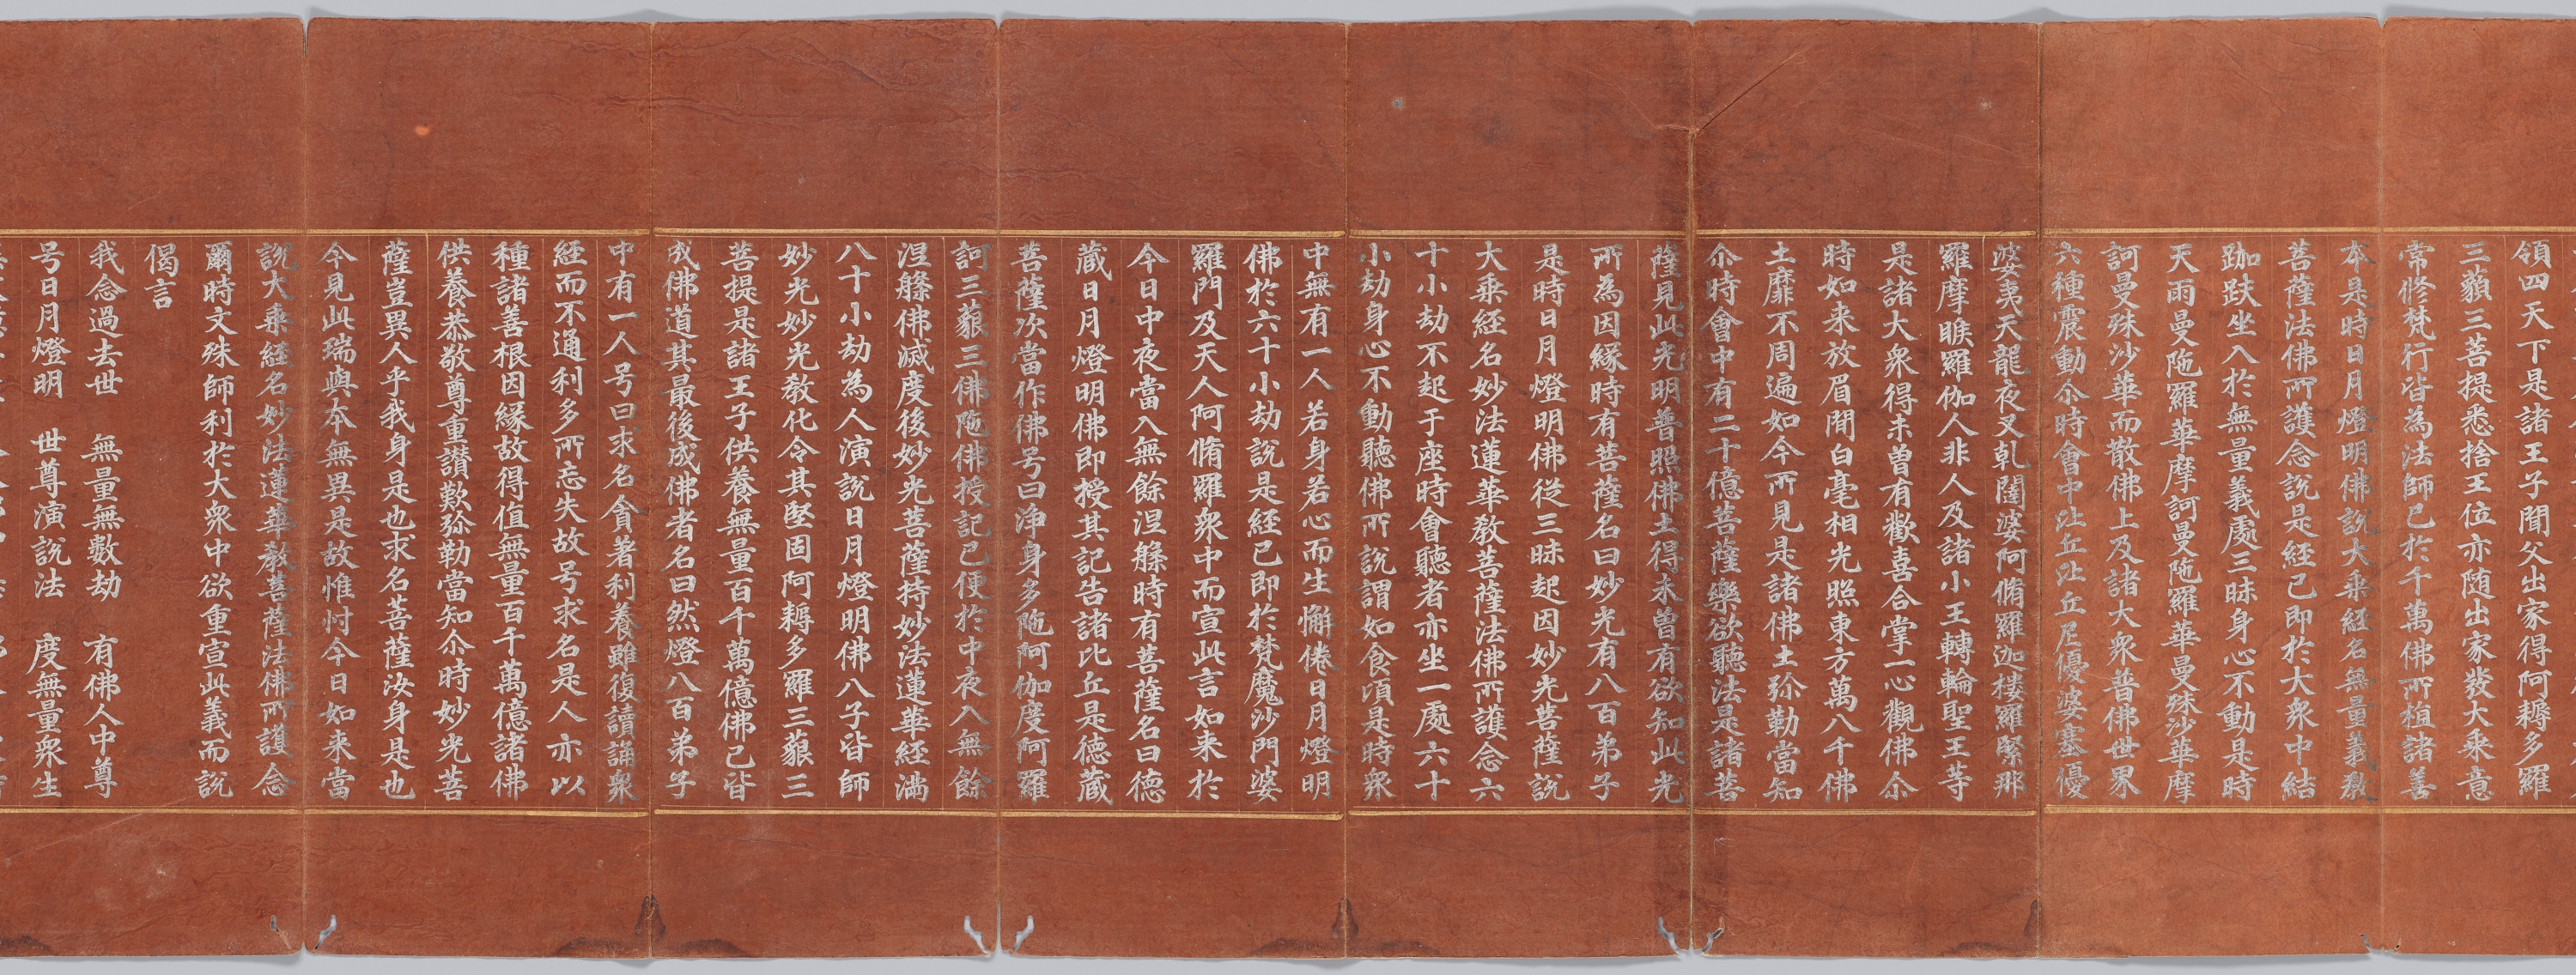 領四天下是諸王子聞父出家得阿耨多羅
三藐三菩提悉捨王位亦随出家發大乘意
常修梵行皆為法師已於千萬佛所植諸善
本是時日月燈明佛說大乘経名無量義教
菩薩法佛所護念說是経已即於大衆中結
跏趺坐入於無量義處三昧身心不動是時
天雨曼陁羅華摩訶曼陁羅華曼殊沙華摩
訶曼殊沙華而散佛上及諸大衆普佛世界
六種震動尒時會中比丘比丘尼優婆塞優
婆夷天龍夜叉乹闥婆阿脩羅迦樓羅緊那
羅摩睺羅伽人非人及諸小王轉輪聖王等
是諸大衆得未曽有歡喜合掌一心觀佛尒
時如来放眉間白毫相光照東方萬八千佛
土靡不周遍如今所見是諸佛土弥勒當知
尒時會中有二十億菩薩樂欲聽法是諸菩
薩見此光明普照佛土得未曽有欲知此光
所為因縁時有菩薩名曰妙光有八百弟子
是時日月燈明佛従三昧起因妙光菩薩說
大乘経名妙法蓮華教菩薩法佛所護念六
十小劫不起于座時會聽者亦坐一處六十
小劫身心不動聽佛所說謂如食頃是時衆
中無有一人若身若心而生懈倦日月燈明
佛於六十小劫說是経已即於梵魔沙門婆
羅門及天人阿脩羅衆中而宣此言如来於
今日中夜當入無餘涅槃時有菩薩名曰德
藏日月燈明佛即授其記告諸比丘是德藏
菩薩次當作佛号曰浄身多陁阿伽度阿羅
訶三藐三佛陁佛授記已便於中夜入無餘
涅槃佛滅度後妙光菩薩持妙法蓮華経満
八十小劫為人演說日月燈明佛八子皆師
妙光妙光教化令其堅固阿耨多羅三藐三
菩提是諸王子供養無量百千萬億佛已皆
成佛道其最後成佛者名曰然燈八百弟子
中有一人号曰求名貪著利養雖復讀誦衆
経而不通利多所忘失故号求名是人亦以
種諸善根因縁故得值無量百千萬億諸佛
供養恭敬尊重讃歎弥勒當知尒時妙光菩
薩豈異人乎我身是也求名菩薩汝身是也
今見此瑞與本無異是故惟忖今日如来當
說大乘経名妙法蓮華教菩薩法佛所護念
爾時文殊師利於大衆中欲重宣此義而說
偈言
我念過去世　無量無數劫　有佛人中尊
号日月燈明　世尊演說法　度無量衆生